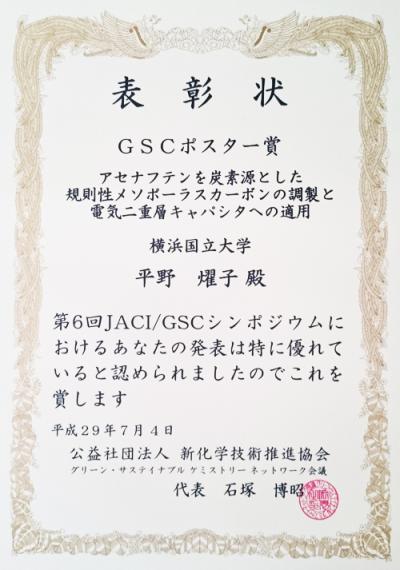 表彰状
GSCポスター賞
アセナフテンを炭素源とした
規則性メソポーラスカーボンの調製と
電気二重層キャパシタへの適用
横浜国立大学
平野 燿子 殿
第6回JACI/GSCシンポジウムに
おけるあなたの発表は特に優れて
いると認められましたのでこれを
賞します
平成29年7月4日
公益社団法人 新化学技術推進協会
グリーン・サステイナブル ケミストリー ネットワーク会議
代表 石塚 博昭